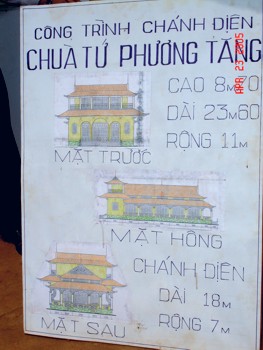 CÔNG TRÌNH CHÁNH ĐIỆN
CHUÀ TỨ PHƯƠNG TĂNG
CAO 8M70
DÀI 23M60
RỘNG 11M
MẶT TRƯỚC
MẶT HÔNG
CHÁNH ĐIỆN
DÀI 18M
RỘNG 7M
MẶT SAU
APR 23 2005